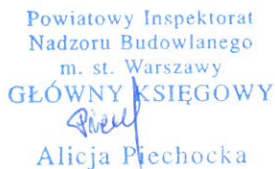 Powiatowy Inspektorat
Nadzoru Budowlanego
m. st. Warszawy
GŁÓWNY KSIĘGOWY
Alicja Piechocka